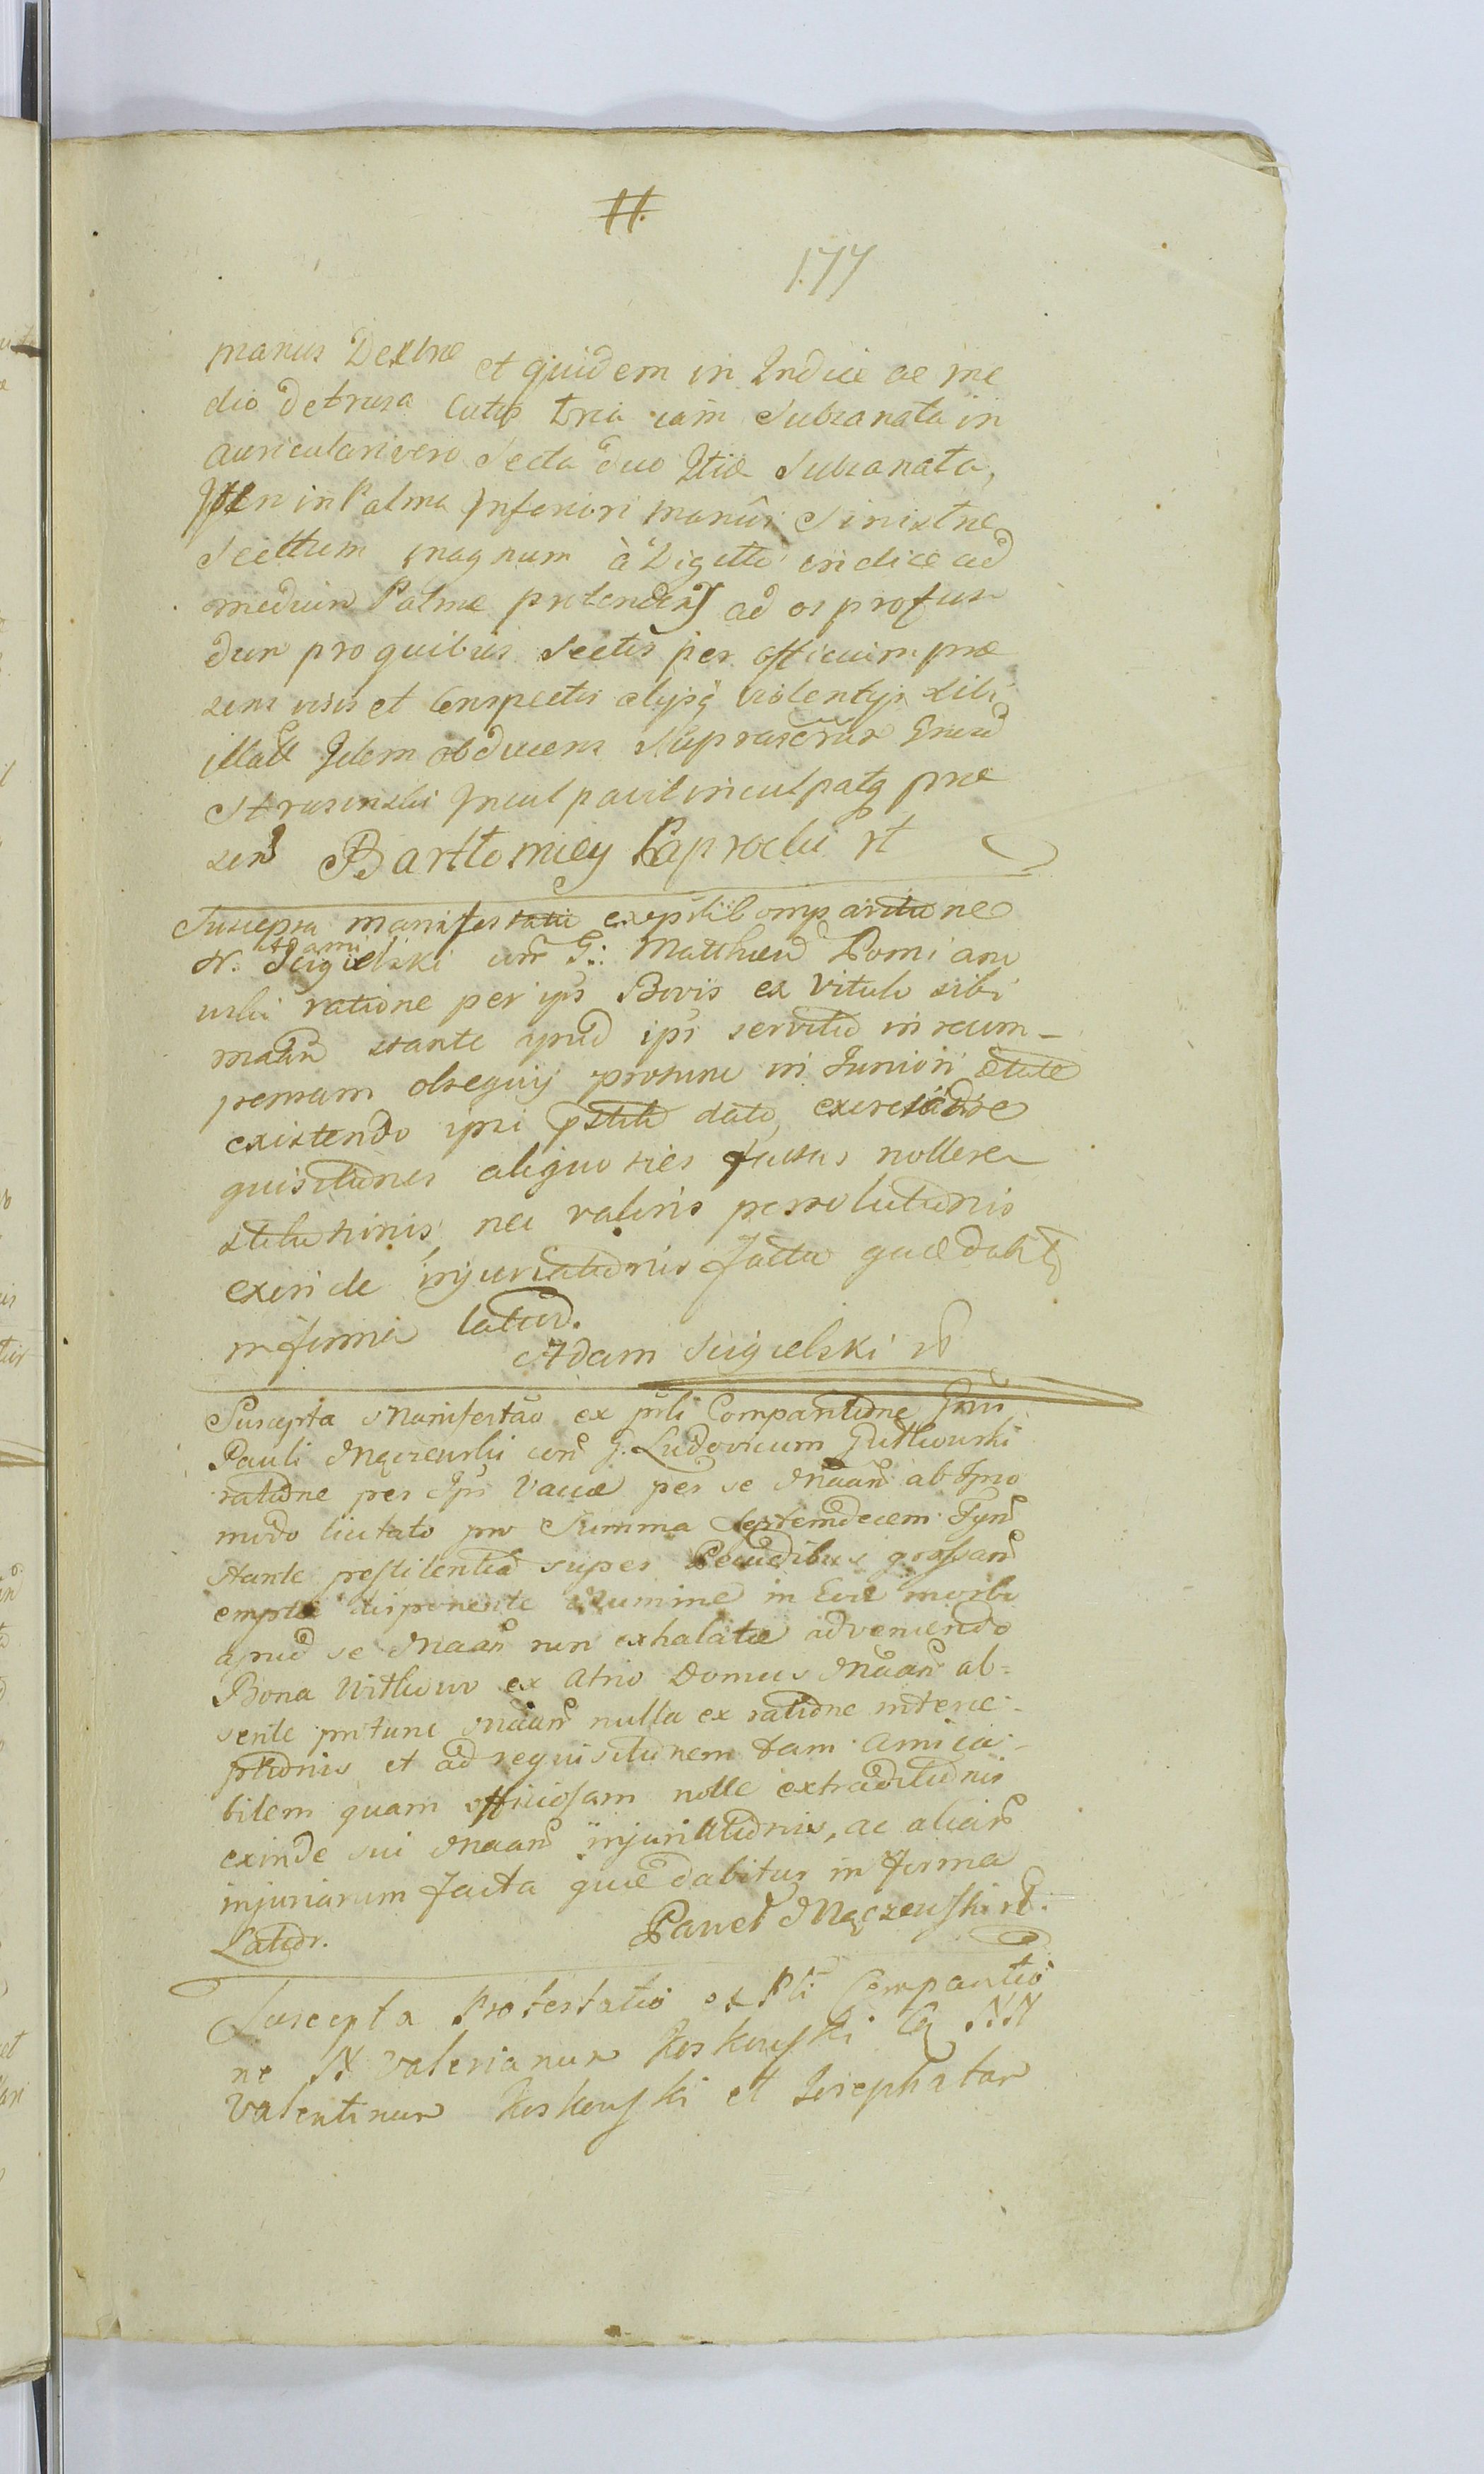 #.
177
manus Dextræ et quidem in Indice ac me
dio detrusa Cutis tria iam Subsanata in
auriculari vero Secta duo Itid Subsanata,
Item in Palma Inferiori manus Sinistræ
Sectum magnum à Digitto indice ad
medium Palmæ protenden ad os profun
dum pro quibus Sectis per officium præ
sens visis et Conspectis alysq violentys sibi
illatt Idem obducens Suprascrun
Strusinski Inculpavit inculpatq præ
sens Bartłomiey Paprocki rt
Suscepta manifestatio ex psli Comparitione
N. Adami Scigielski con G: Matthæu Pomiano
wski ratione per ips Bovis ex Vitulo sibi
maan stante apud ips servitio in recom-
pensam obsequij protunc in Juniori ætate
existendo ipsi dato,
quisitiones aliquoties factas nolle re
stitutionis, nec valoris persolutionis
exinde injuriationis facta quæ dabit
in forma latior.
Adam Scigielski rt
Suscepta Manifestao ex psli Comparitione Gnsi
Pauli Mączewski con G. Ludovicum Gutkowski
ratione per Ips Vaccæ per se Maan ab Ipso
modo licitato pro Summa Septemdecem Tyn
stante pestilentia super Pecudibus grassan
emptæ disponente Numine in Eod morbo
apud se Maan non exhalatæ adveniendo
Bona Witkowo ex Atrio Domus Maan ab-
sente protunc Maan nulla ex ratione interce-
ptionis et ad requisitionem tam amica-
bilem quam officiosam nolle extraditionis
exinde sui Maan injuriationis, ac aliar
injuriarum facta quæ dabitur in forma
Latior.
Paweł Mączewski rt.
Suscepta Protestatio ex Psli Comparitio
ne N Valerianus Koskowski Ca NN
Valentinum Koskowski et Josephatam